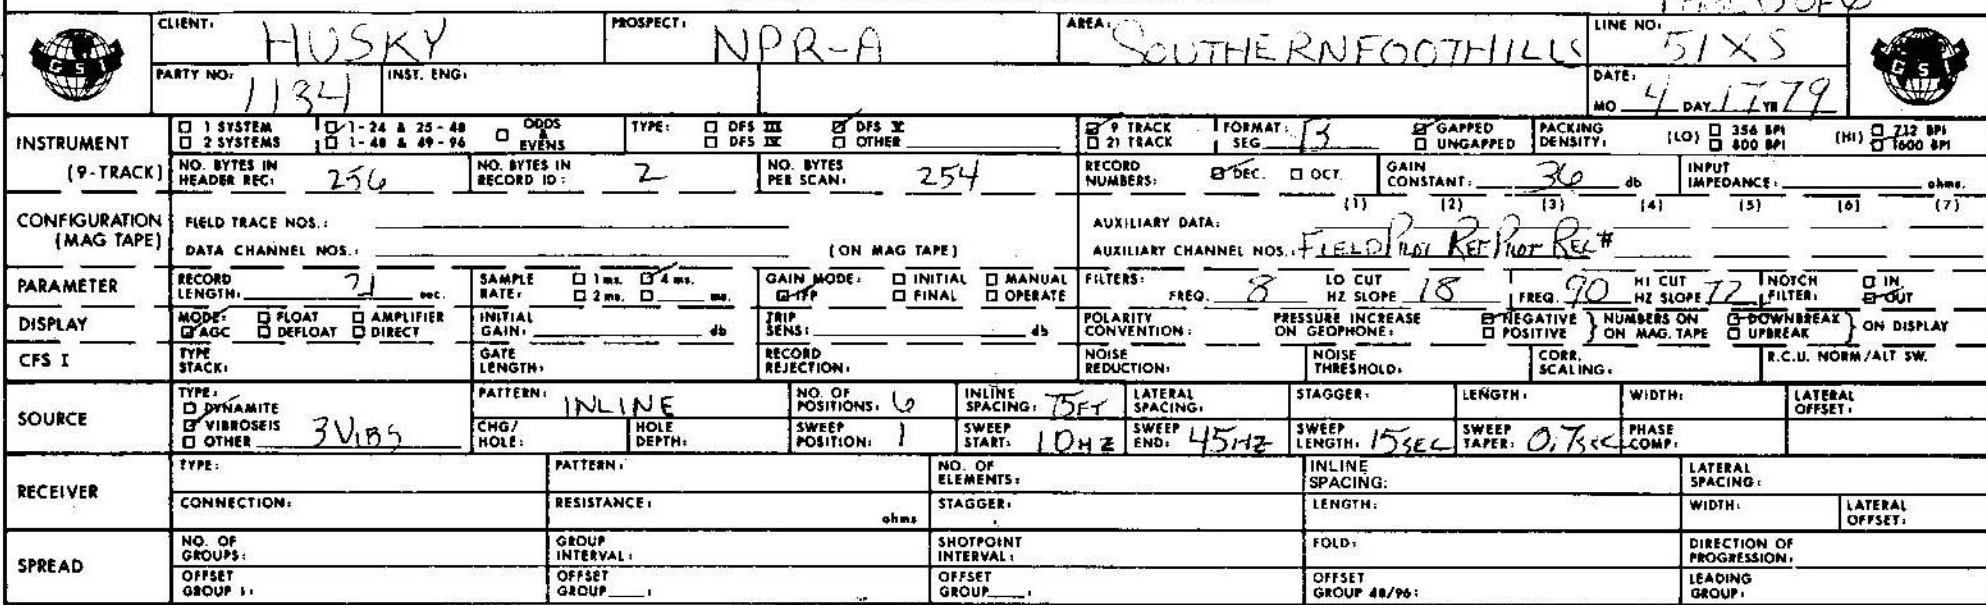 CLIENT: HUSKY PROSPECT: NPR-A AREA: SOUTHERN FOOTHILLS LINE NO: 51XS
GSI GSI
PARTY NO: 1134 INST. ENG: DATE: MO 4 DAY 17 YR 79
INSTRUMENT (9-TRACK)
☐ 1 SYSTEM ☑ 1-24 & 25-48 ☐ ODDS & EVENS TYPE: ☐ DFS III ☑ DFS V ☑ 9 TRACK FORMAT: SEG B ☑ GAPPED PACKING DENSITY: (LO) ☐ 356 BPI (HI) ☐ 712 BPI
☐ 2 SYSTEMS ☐ 1-48 & 49-96 ☐ DFS IV ☐ OTHER ☐ 21 TRACK ☐ UNGAPPED ☐ 800 BPI ☐ 1600 BPI
NO. BYTES IN HEADER REC: 256 NO. BYTES IN RECORD ID: 2 NO. BYTES PER SCAN: 254 RECORD NUMBERS: ☑ DEC. ☐ OCT. GAIN CONSTANT: 36 db INPUT IMPEDANCE: ohms.
CONFIGURATION (MAG TAPE)
(1) (2) (3) (4) (5) (6) (7)
FIELD TRACE NOS.: AUXILIARY DATA:
DATA CHANNEL NOS.: (ON MAG TAPE) AUXILIARY CHANNEL NOS.: FIELD PILOT REF PILOT REC#
PARAMETER RECORD LENGTH: 21 sec. SAMPLE RATE: ☐ 1 ms. ☑ 4 ms. ☐ 2 ms. ☐ ms. GAIN MODE: ☐ INITIAL ☐ MANUAL ☑ IFP ☐ FINAL ☐ OPERATE FILTERS: FREQ. 8 LO CUT HZ SLOPE 18 FREQ. 90 HI CUT HZ SLOPE 72 NOTCH FILTER: ☐ IN ☑ OUT
DISPLAY MODE: ☐ FLOAT ☐ AMPLIFIER ☑ AGC ☐ DEFLOAT ☐ DIRECT INITIAL GAIN: db TRIP SENS: db POLARITY CONVENTION: PRESSURE INCREASE ON GEOPHONE: ☑ NEGATIVE ☐ POSITIVE } NUMBERS ON ON MAG. TAPE ☑ DOWNBREAK ☐ UPBREAK } ON DISPLAY
CFS I TYPE STACK: GATE LENGTH: RECORD REJECTION: NOISE REDUCTION: NOISE THRESHOLD: CORR. SCALING: R.C.U. NORM/ALT SW.
SOURCE TYPE: ☐ DYNAMITE ☑ VIBROSEIS ☐ OTHER 3 VIBS
PATTERN: INLINE NO. OF POSITIONS: 6 INLINE SPACING: 75FT LATERAL SPACING: STAGGER: LENGTH: WIDTH: LATERAL OFFSET:
CHG/HOLE: HOLE DEPTH: SWEEP POSITION: 1 SWEEP START: 10HZ SWEEP END: 45HZ SWEEP LENGTH: 15SEC SWEEP TAPER: 0.7SEC PHASE COMP:
RECEIVER TYPE: PATTERN: NO. OF ELEMENTS: INLINE SPACING: LATERAL SPACING:
CONNECTION: RESISTANCE: ohms STAGGER: LENGTH: WIDTH: LATERAL OFFSET:
SPREAD NO. OF GROUPS: GROUP INTERVAL: SHOTPOINT INTERVAL: FOLD: DIRECTION OF PROGRESSION:
OFFSET GROUP 1: OFFSET GROUP : OFFSET GROUP : OFFSET GROUP 48/96: LEADING GROUP: